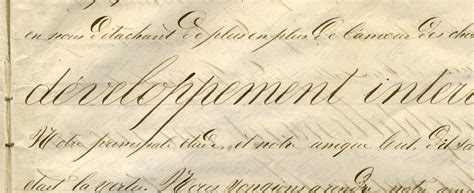 en nous détachant de plus en plus de l'amour des cho
développement intéri
Notre principale étude, et notre unique but, dit-
était la vertu. Nous